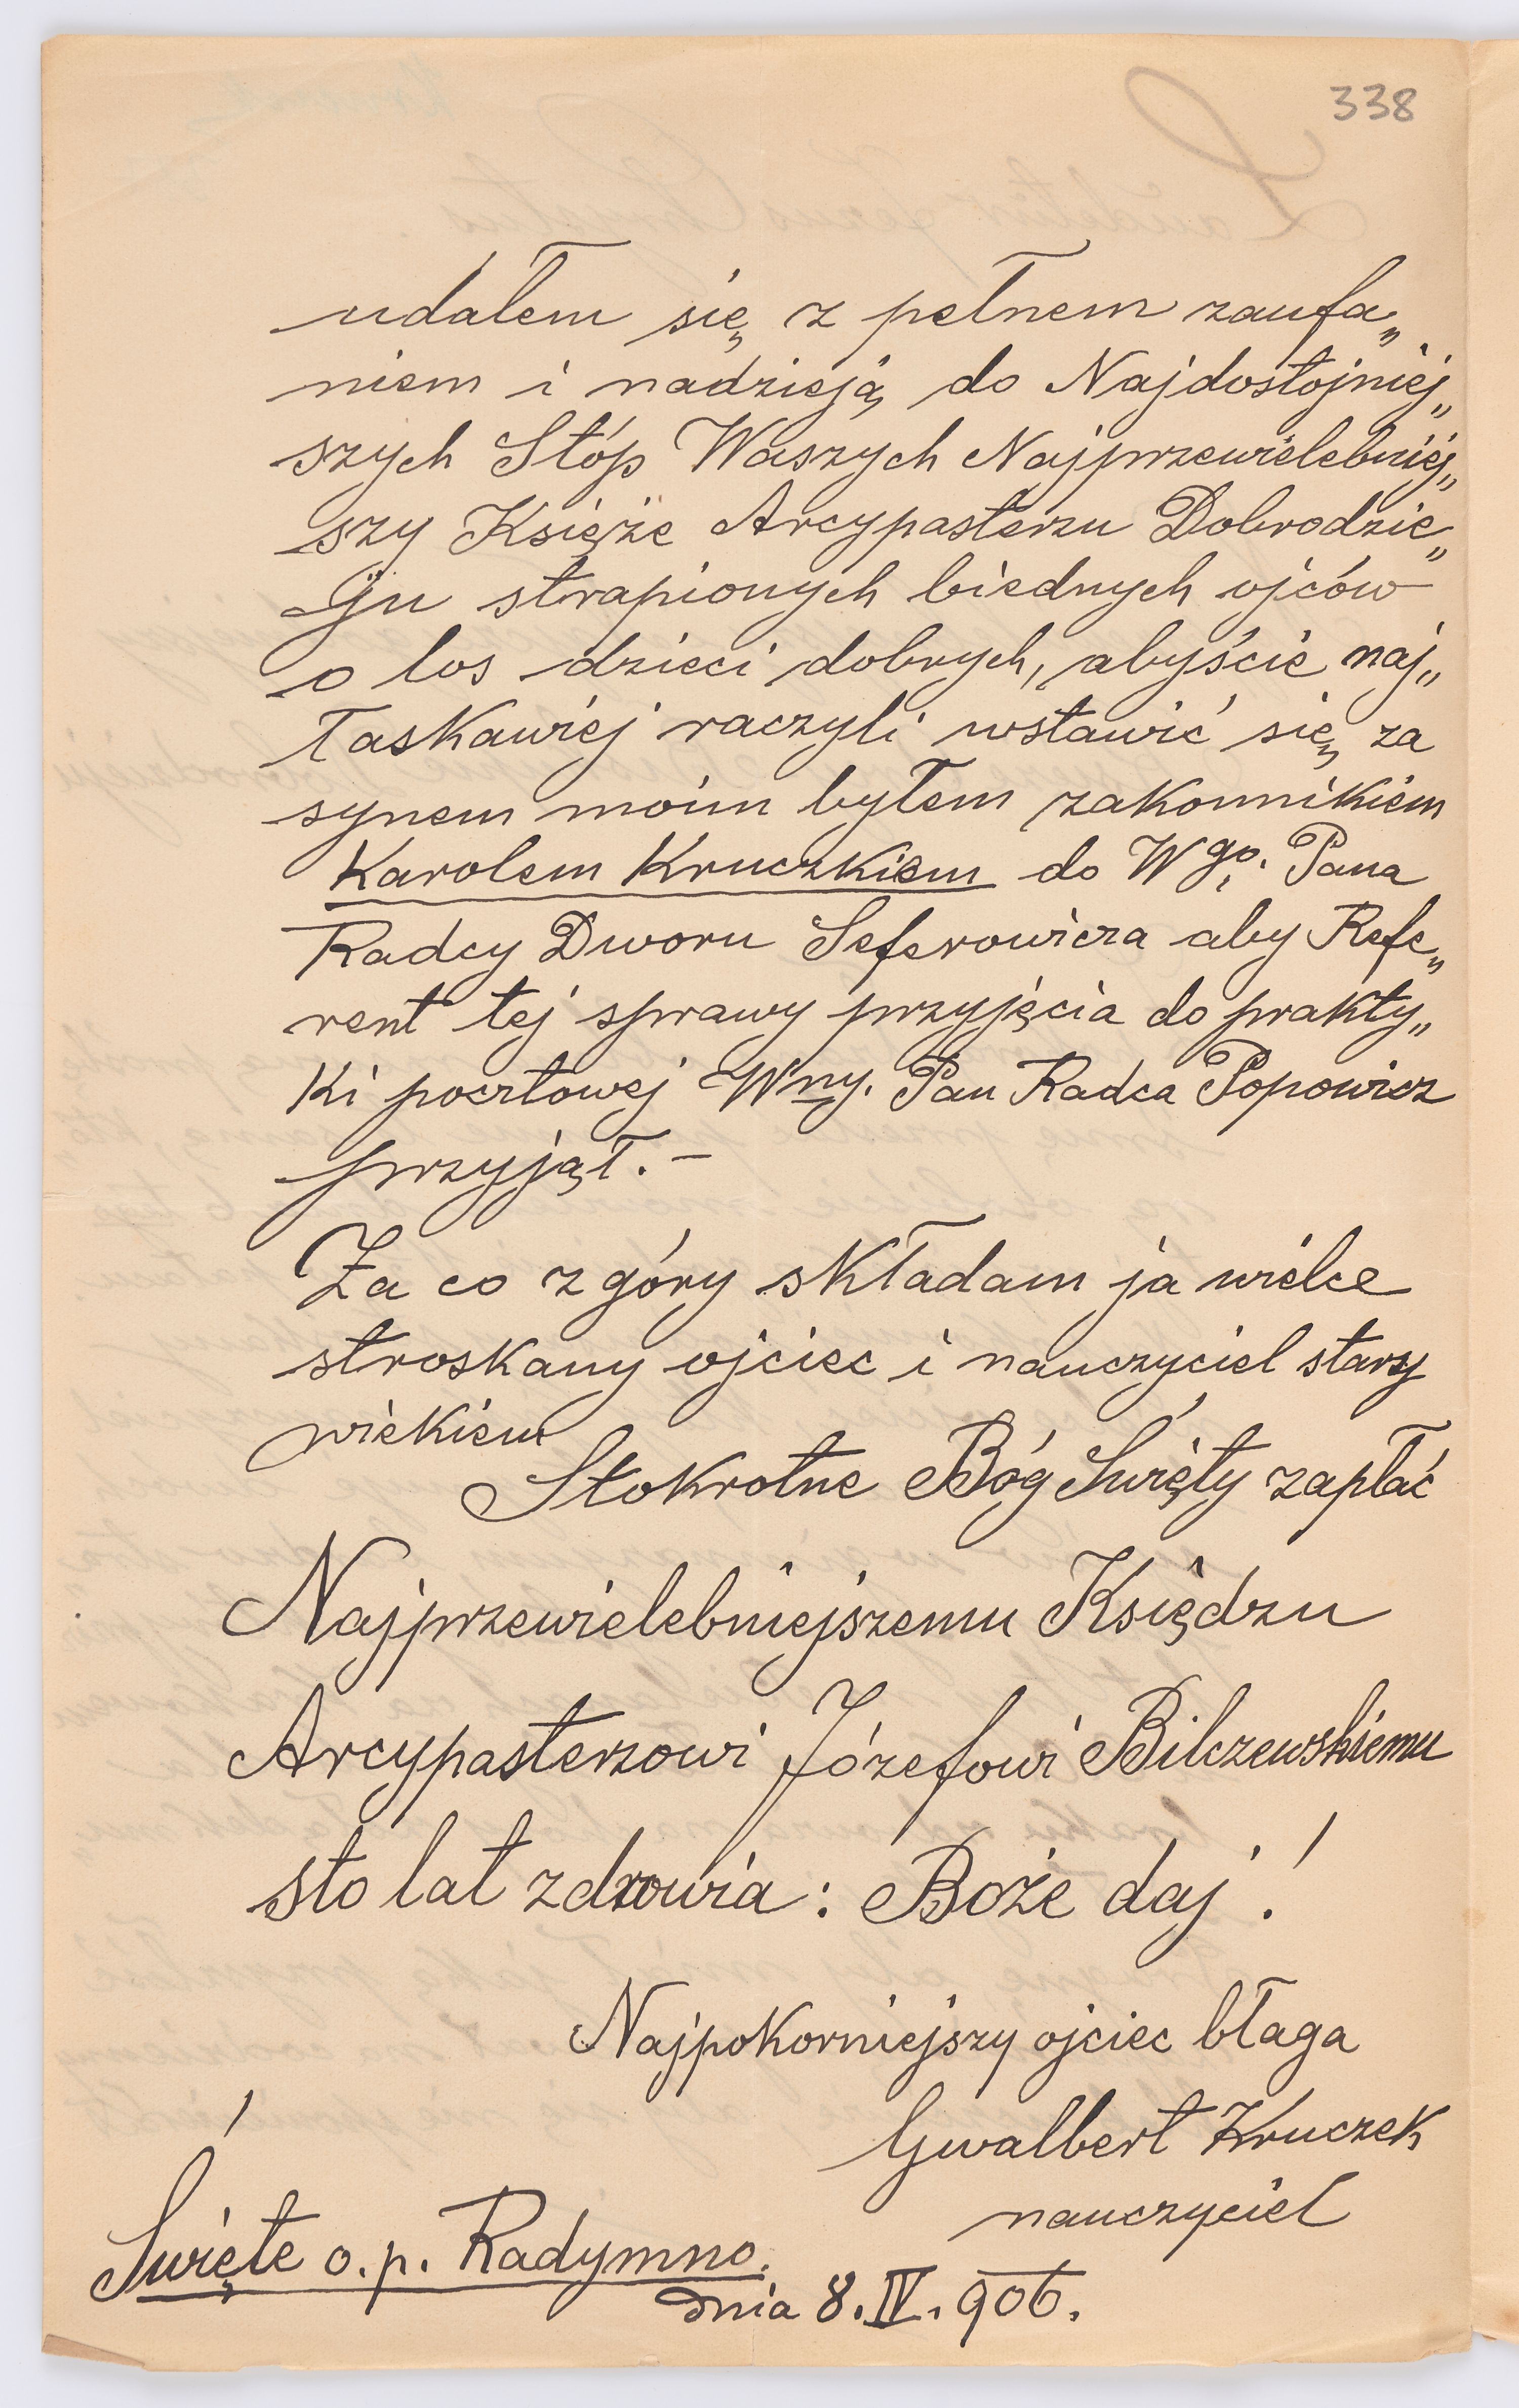 338
udałem się z pełnem zaufa„
niem i nadzieją do Najdostojniej„
szych Stóp Waszych Najprzewielebniej„
szy Księże Arcypasterzu Dobrodzie„
ju strapionych biednych ojców
o los dzieci dobrych, abyście naj„
łaskawiej raczyli wstawić się za
synem moim byłem zakonnikiem
Karolem Kruczkiem do Wgo. Pana
Radcy Dworu Seferowicza aby Refe„
rent tej sprawy przyjęcia do prakty„
ki pocztowej Wny. Pan Radca Popowicz
przyjął. –
Za co z góry składam ja wielce
stroskany ojciec i nauczyciel stary
wiekiem
Stokrotne Bóg Święty zapłać
Najprzewielebniejszemu Księdzu
Arcypasterzowi Józefowi Bilczewskiemu
sto lat zdrowia: Boże daj!
Najpokorniejszy ojciec błaga
Gwalbert Kruczek
nauczyciel
Święte o.p. Radymno.
dnia 8. IV. 906.